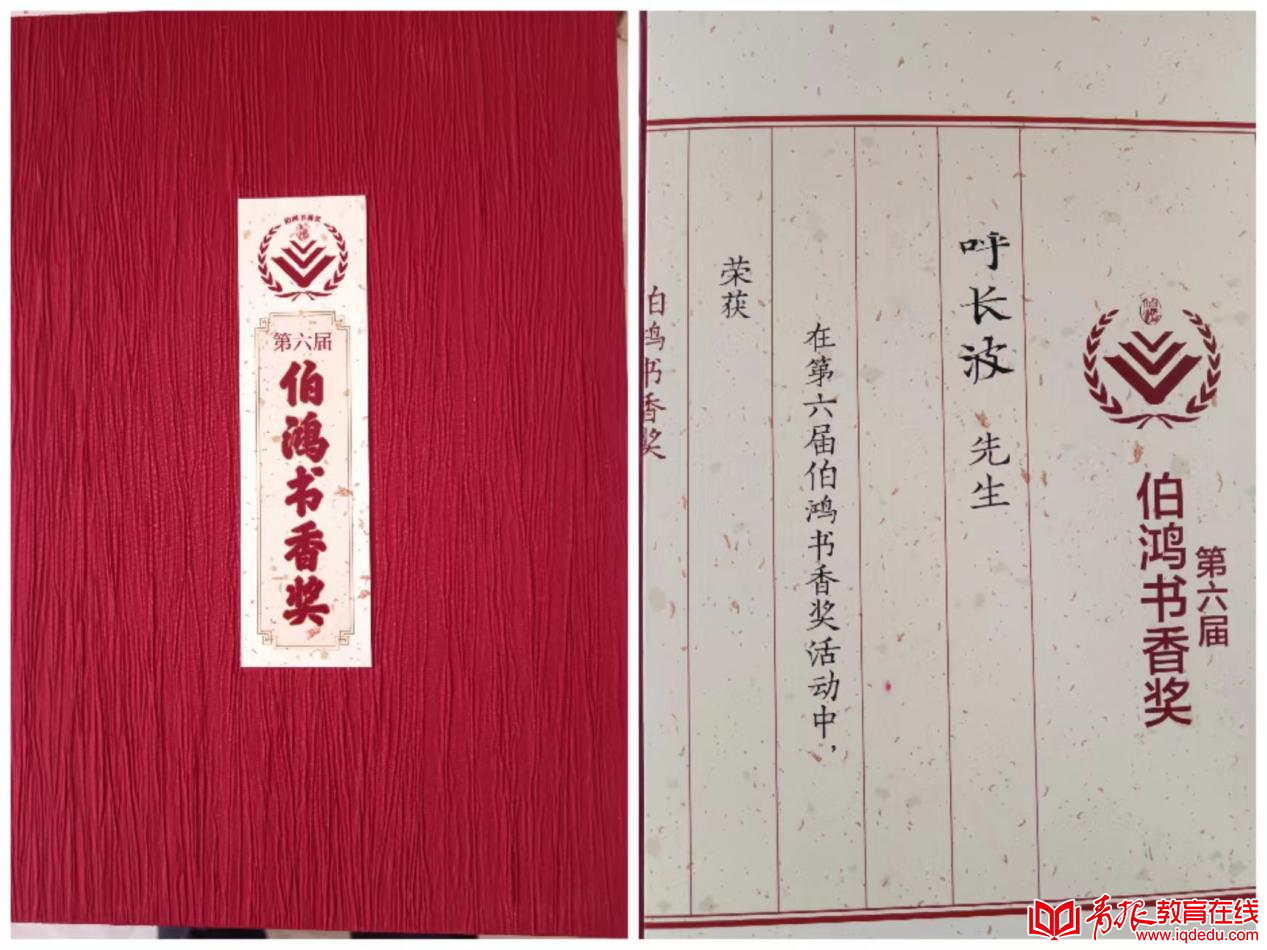 伯鸿书香奖
第六届
伯鸿书香奖
第六届
伯鸿书香奖
呼长波 先生
在第六届伯鸿书香奖活动中，
荣获
伯鸿书香奖
青报教育在线
www.iqdedu.com